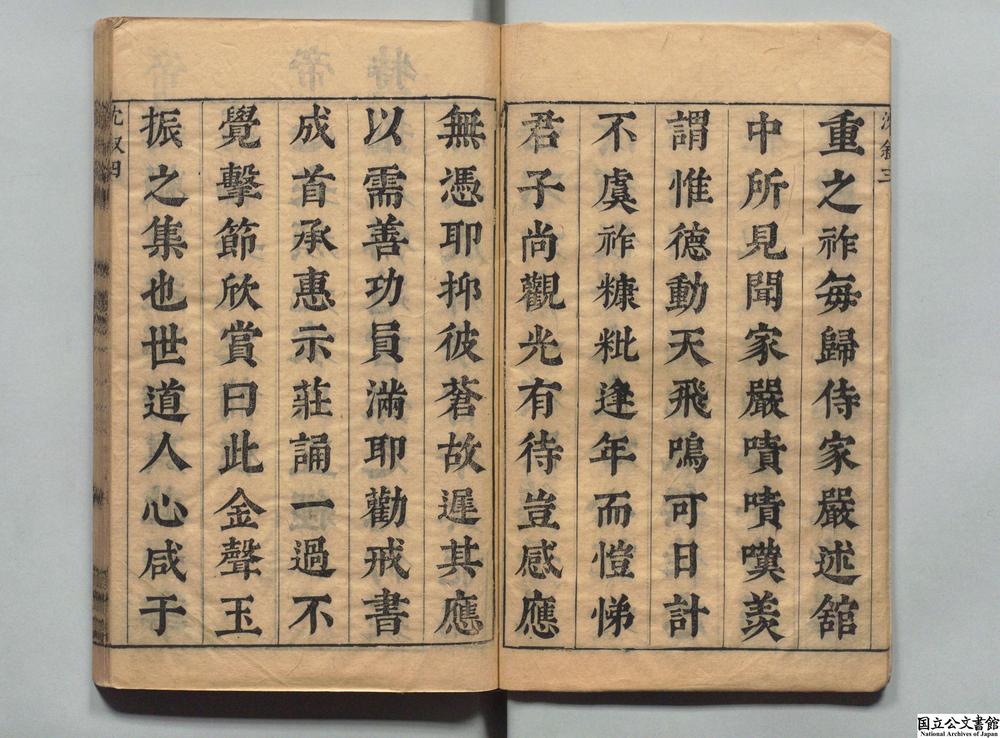 重之祚毎歸侍家嚴述舘
中所見聞家嚴嘖嘖嘆羨
謂惟德動天飛鳴可日計
不虞祚糠粃逢年而愷悌
君子尚觀光有待豈感應
無憑耶抑彼蒼故遲其應
以需善功員滿耶勸戒書
成首承惠示莊誦一過不
覺擊節欣賞曰此金聲玉
振之集也世道人心咸于
国立公文書館
National Archives of Japan